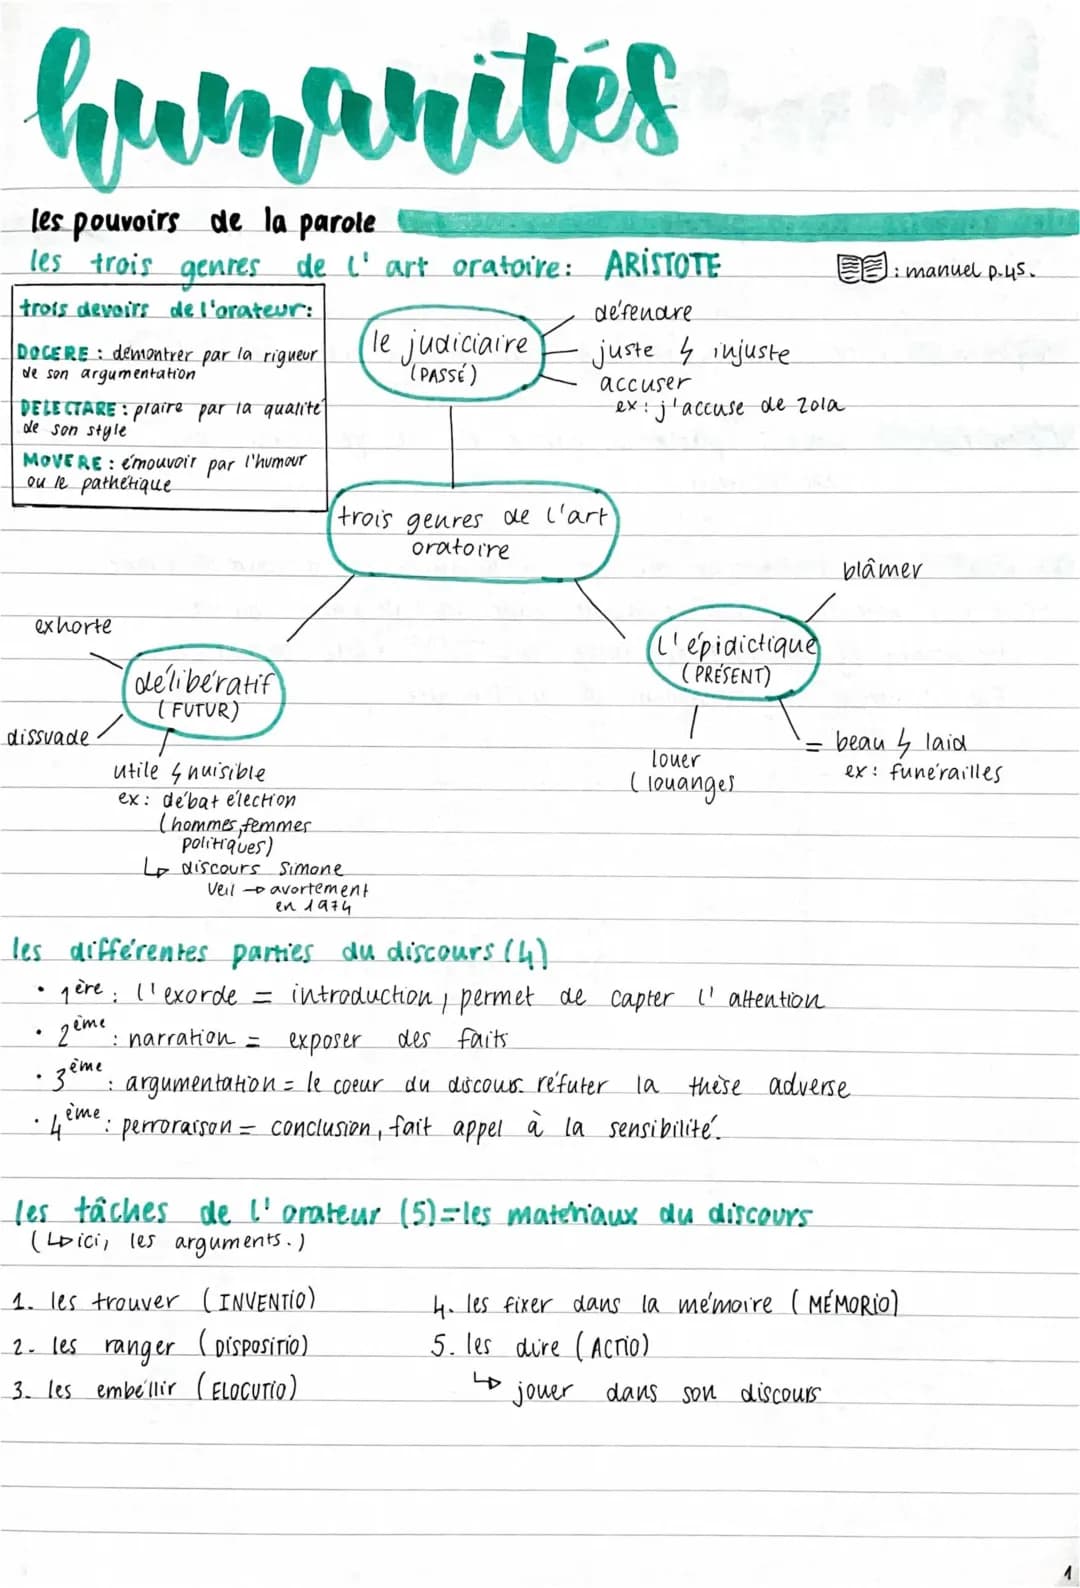 humanités
les pouvoirs de la parole
les trois genres de l'art oratoire: ARISTOTE
: manuel p.45.
trois devoirs de l'orateur:
DOCERE : démontrer par la rigueur
de son argumentation
DELECTARE : plaire par la qualité
de son style
MOVERE : émouvoir par l'humour
ou le pathétique
le judiciaire
(PASSÉ)
défendre
juste ↯ injuste
accuser
ex: j'accuse de Zola
trois genres de l'art
oratoire
exhorte
délibératif
(FUTUR)
dissuade
utile ↯ nuisible
ex: débat élection
(hommes, femmes
politiques)
↳ discours Simone
Veil → avortement
en 1974
blâmer
l'épidictique
(PRÉSENT)
louer
(louanges
= beau ↯ laid
ex: funérailles
les différentes parties du discours (4)
• 1ère : l'exorde = introduction, permet de capter l'attention
• 2ème : narration = exposer des faits
• 3ème : argumentation = le coeur du discours. réfuter la thèse adverse
• 4ème : perroraison = conclusion, fait appel à la sensibilité.
les tâches de l'orateur (5)=les matériaux du discours
(↳ici, les arguments.)
1. les trouver (INVENTIO)
2. les ranger (DISPOSITIO)
3. les embéllir (ELOCUTIO)
4. les fixer dans la mémoire (MÉMORIO)
5. les dire (ACTIO)
↳ jouer dans son discours
1